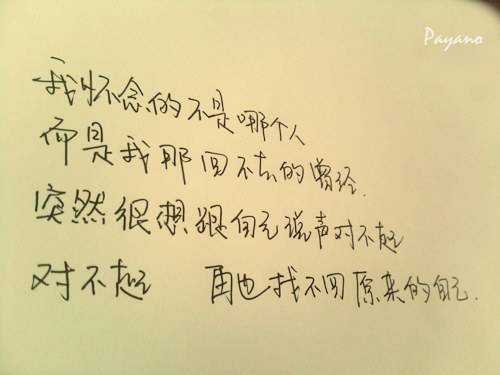 Payano
我怀念的不是哪个人
而是我那回不去的曾经.
突然很想跟自己说声对不起
对不起 再也找不回原来的自己.